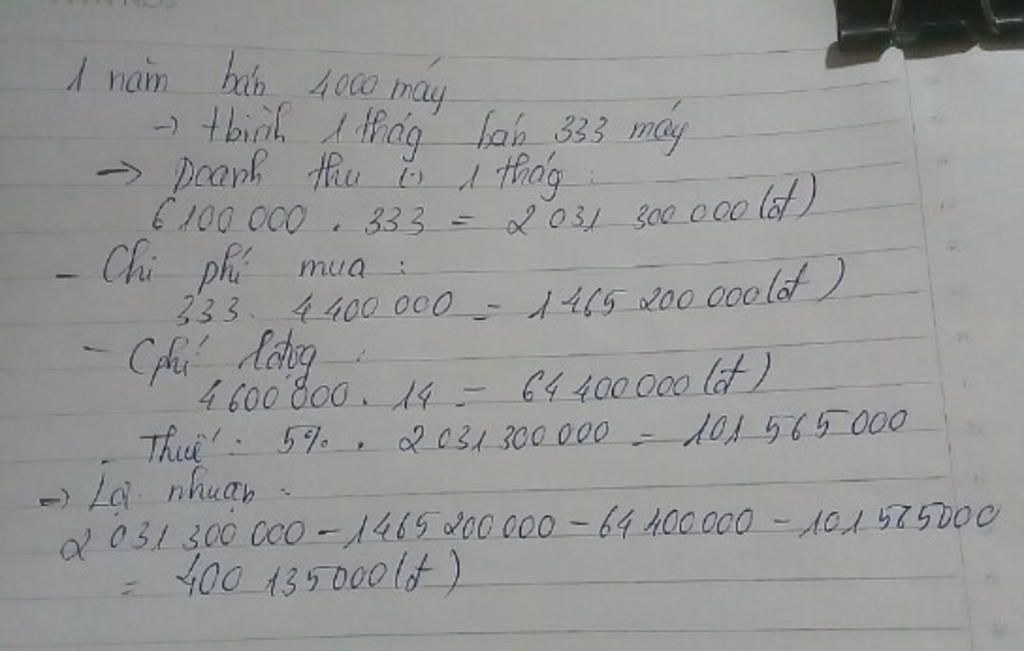 1 năm bán 4000 máy
→ tbình 1 thág bán 333 máy
→ Doanh thu (·) 1 thág :
6 100 000 . 333 = 2 031 300 000 (đ)
- Chi phí mua :
333 . 4 400 000 = 1 465 200 000 (đ)
- Cphí lđộng :
4 600 000 . 14 = 64 400 000 (đ)
- Thuế : 5% . 2 031 300 000 = 101 565 000
→ Lợi nhuận :
2 031 300 000 - 1465 200 000 - 64 400 000 - 101 565 000
= 400 135 000 (đ)